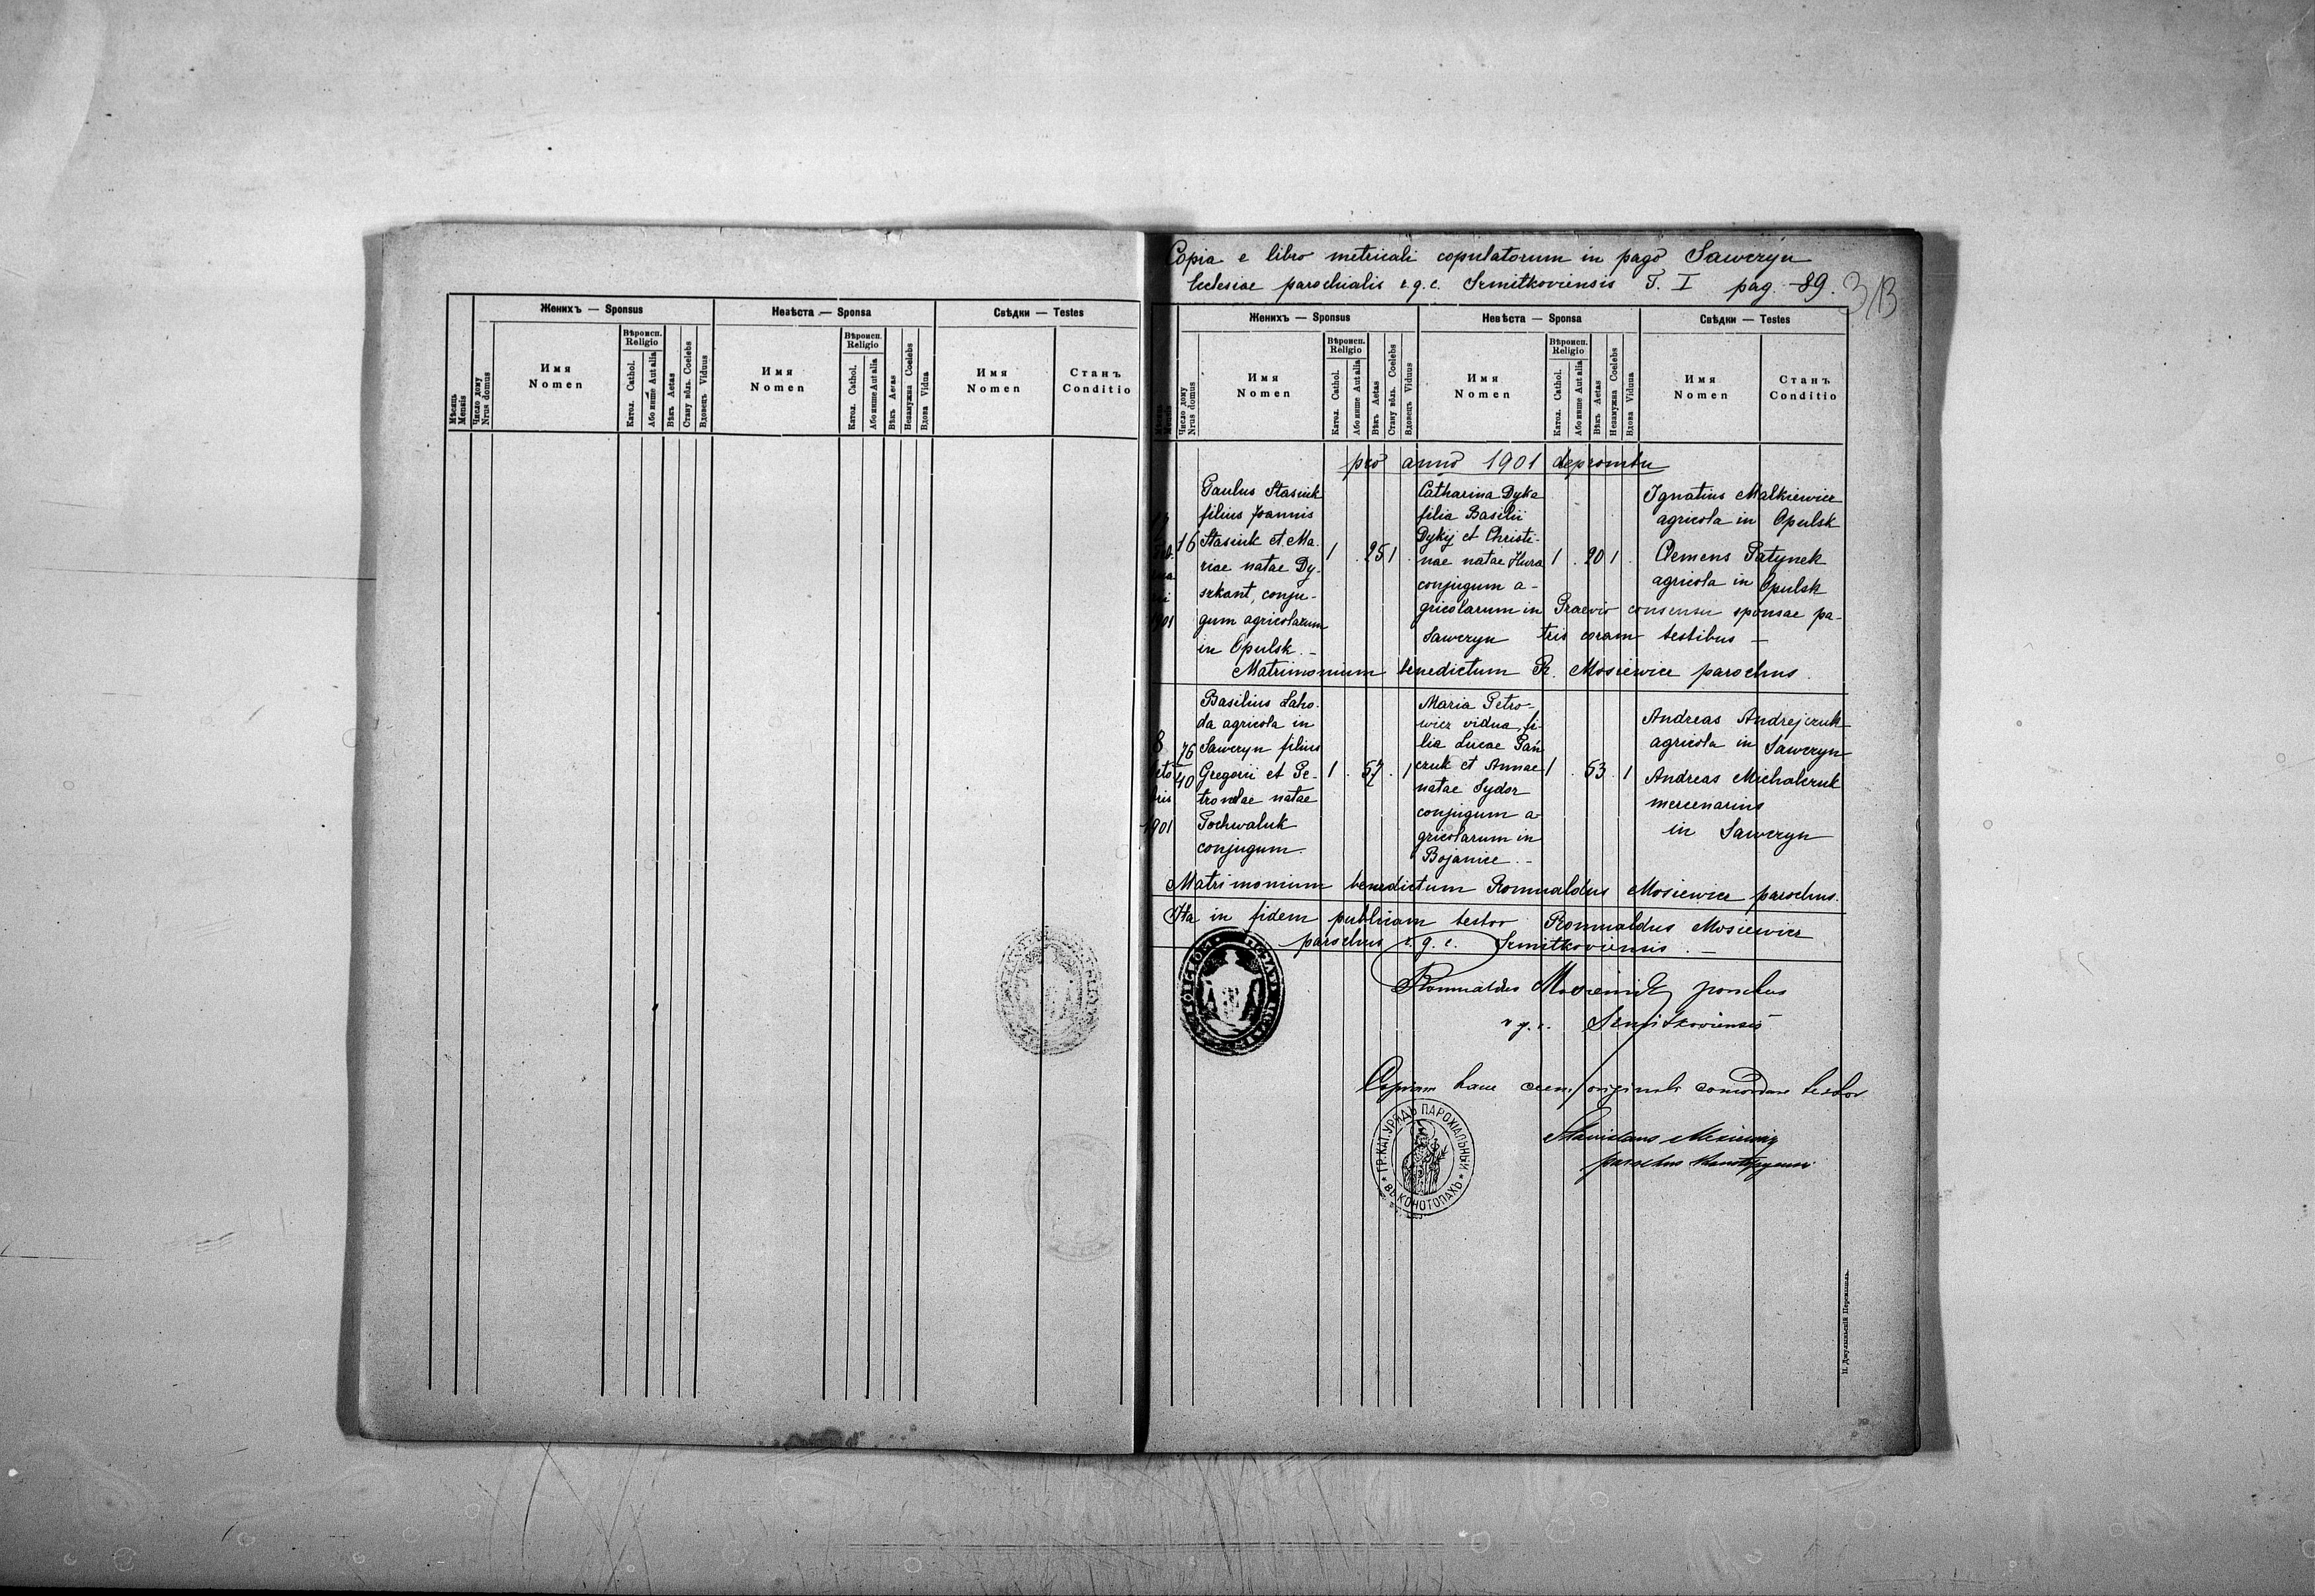 Женихъ — Sponsus
Невѣста — Sponsa
Свѣдки — Testes
Мѣсяць Mensis
Число дому Nrus domus
Имя Nomen
Вѣроисп. Religio
Катол. Cathol.
Або инше Aut alia
Вѣкъ Aetas
Стану вôль. Coelebs
Вдовець Viduus
Имя Nomen
Вѣроисп. Religio
Катол. Cathol.
Або инше Aut alia
Вѣкъ Aetas
Незамужна Coelebs
Вдова Vidua
Имя Nomen
Станъ Conditio
Copia e libro metricali copulatorum in pago Sawczyn
Ecclesiae parochialis r.g.c. Szmitkoviensis T. I pag. 89.
313
Женихъ — Sponsus
Невѣста — Sponsa
Свѣдки — Testes
Число дому Nrus domus
Имя Nomen
Вѣроисп. Religio
Катол. Cathol.
Або инше Aut alia
Вѣкъ Aetas
Стану вôль. Coelebs
Вдовець Viduus
Имя Nomen
Вѣроисп. Religio
Катол. Cathol.
Або инше Aut alia
Вѣкъ Aetas
Незамужна Coelebs
Вдова Viduua
Имя Nomen
Станъ Conditio
pro anno 1901 depromtu
1901
16
Paulus Stasiuk
filius Joannis
Stasiuk et Ma-
riae natae Dy-
szkant, conju-
gum agricolarum
in Opulsk. –
1 . 25 1 .
Catharina Dyka
filia Basilii
Dykij et Christi-
nae natae Hura
conjugum a-
gricolarum in
Sawczyn
1 . 20 1 .
Ignatius Malkiewicz
agricola in Opulsk
Clemens Patynek
agricola in Opulsk
Praevio consensu sponsae pa-
tris coram testibus –
Matrimonium benedictum R. Mosiewicz parochus.
8
1901
76
40
Basilius Laho-
da agricola in
Sawczyn filius
Gregorii et Pe-
tronelae natae
Pochwaluk
conjugum.
1 . 57 . 1
Maria Petro-
wicz vidua, fi-
lia Lucae Pań
czuk et Annae
natae Sydor
conjugum a-
gricolarum in
Bojanice. –
1 . 53 . 1
Andreas Andrejczuk
agricola in Sawczyn
Andreas Michalczuk
mercenarius
in Sawczyn
Matrimonium benedictum Romualdus Mosiewicz parochus.
Ita in fidem publicam testor Romualdus Mosiewicz
parochus r.g.c. Szmitkoviensis. –
Romualdus Mosiewicz parochus
r.g.c. Szmitkoviensis
Copiam hanc cum originali concordare testor
ГР.КАТ.УРЯДЪ ПАРОХІАЛЬНЫЙ * ВЪ КОНОТОПАХЪ *
parochus